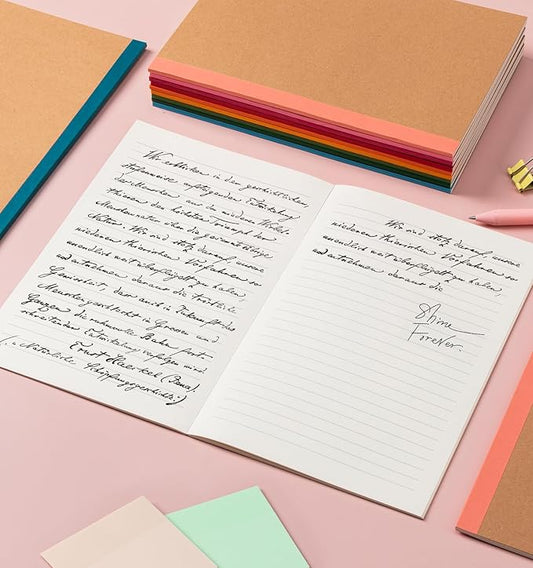 Wir erblicken in der geschichtlichen
stufenweise aufsteigenden Entwickelung
des Menschen aus den niederen Wirbel-
thieren den höchsten Triumph der
Menschennatur über die gesammte übrige
Natur. Wir sind stolz darauf, unsere
niederen thierischen Vorfahren so
unendlich weit überflügelt zu haben,
und entnehmen daraus die tröstliche
Gewissheit, dass auch in Zukunft das
Menschengeschlecht im Grossen und
Ganzen die ruhmvolle Bahn fort-
schreitender Entwickelung verfolgen wird.
Ernst Haeckel (Jena).
(: Natürliche Schöpfungsgeschichte:)
Wir sind stolz darauf, unsere
niederen thierischen Vorfahren so
unendlich weit überflügelt zu haben,
und entnehmen daraus die
Shine
Forever.